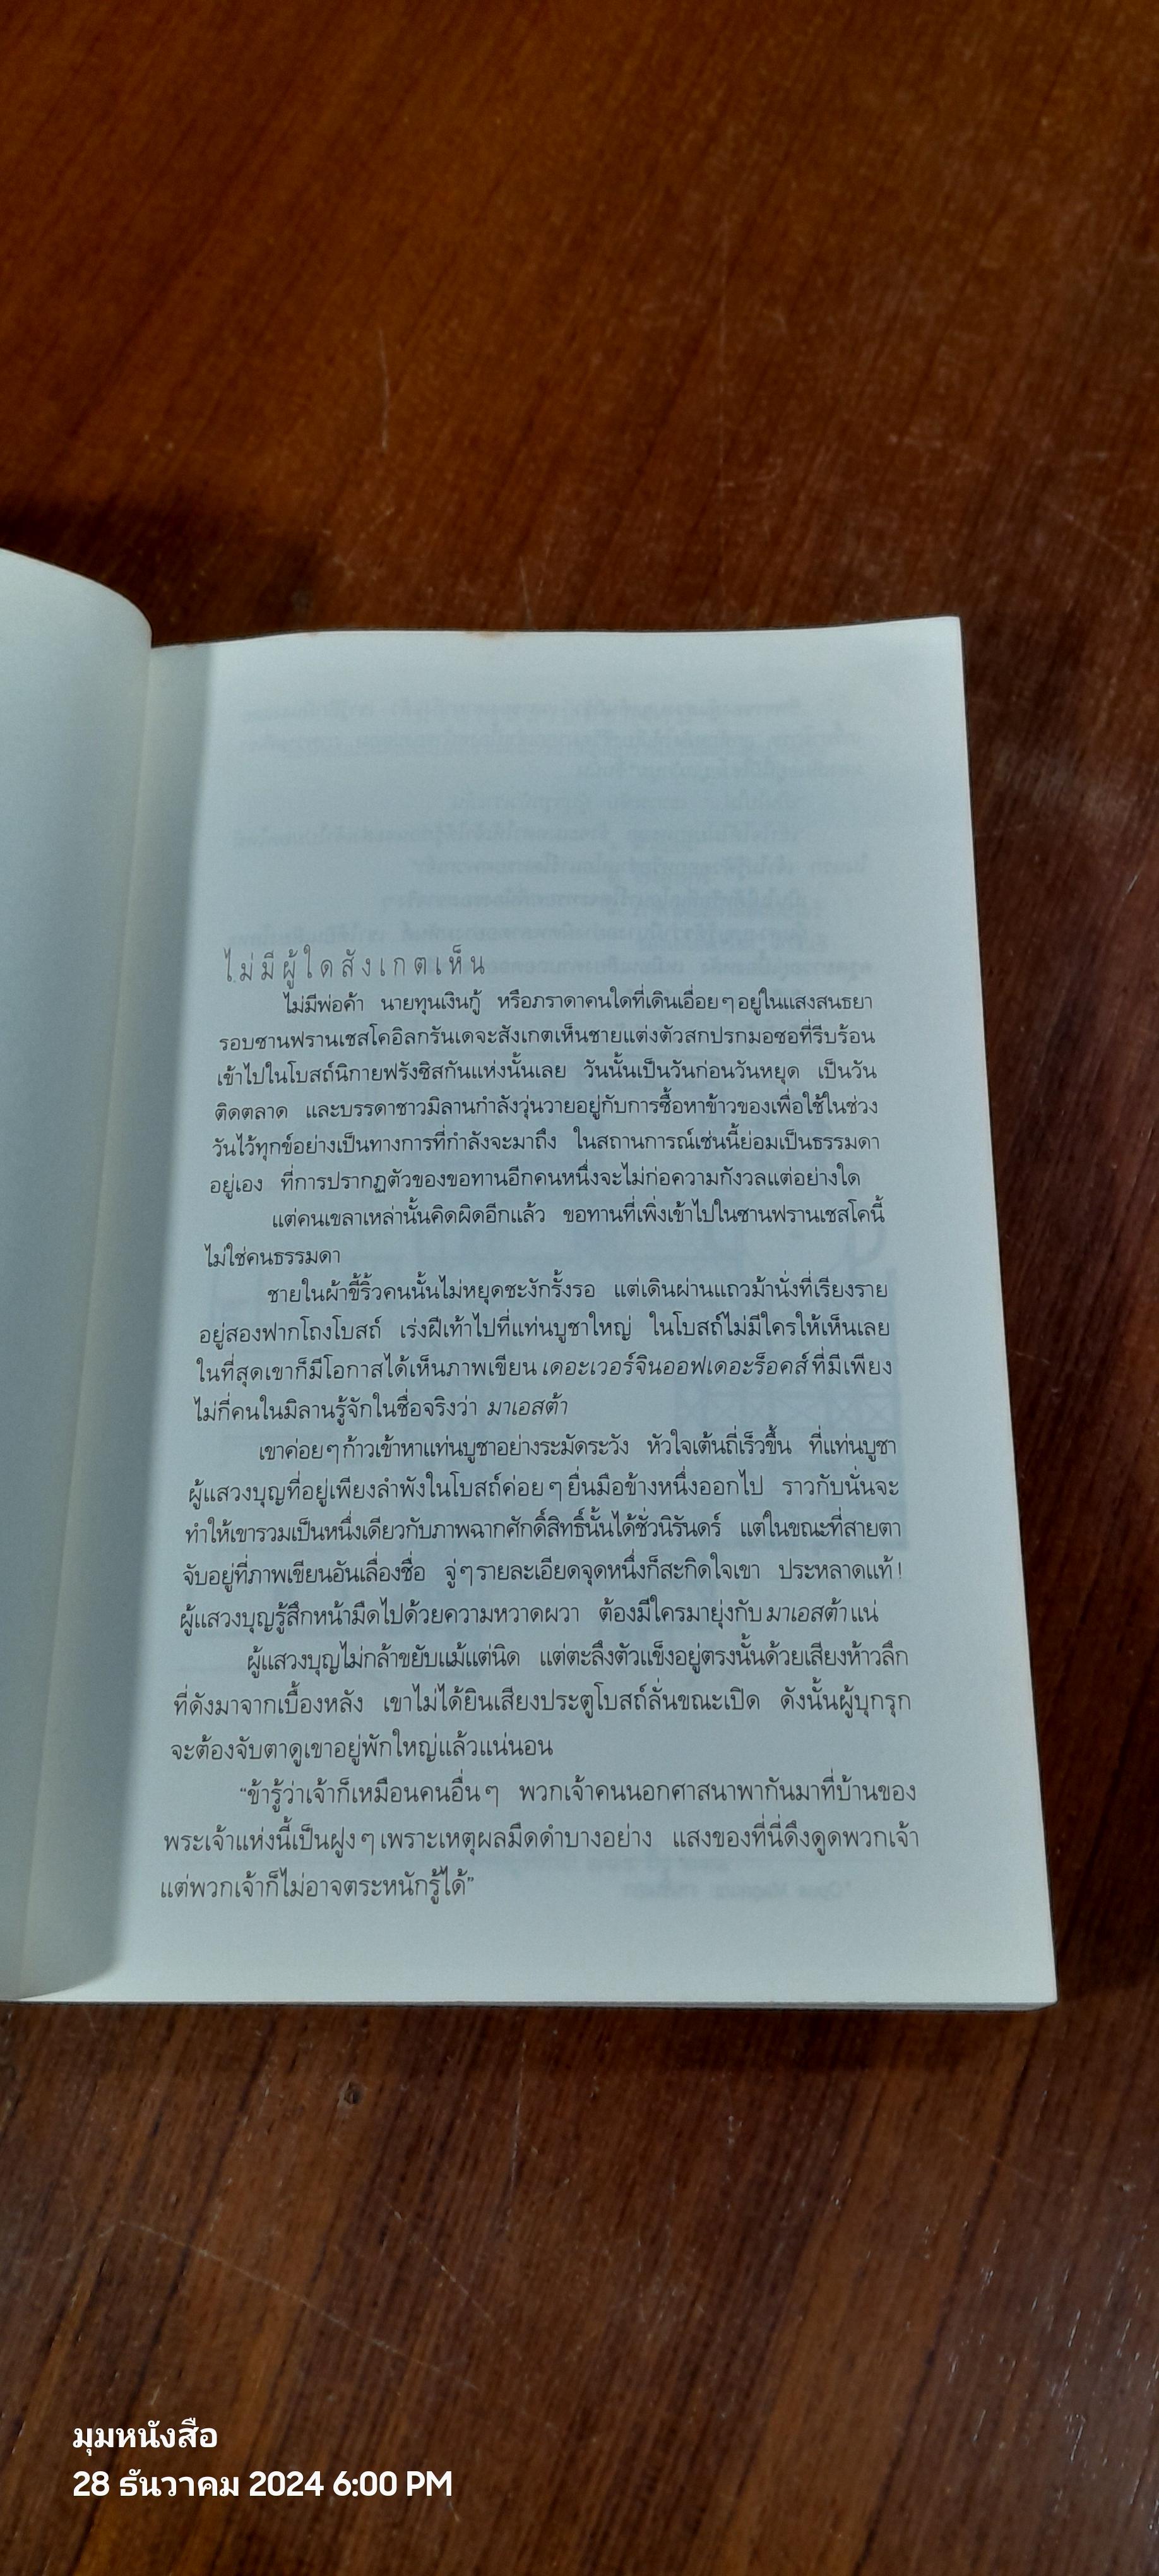 ไม่มีผู้ใดสังเกตเห็น
ไม่มีพ่อค้า นายทุนเงินกู้ หรือภราดาคนใดที่เดินเอื่อยๆอยู่ในแสงสนธยา
รอบซานฟรานเชสโคอิลกรันเดจะสังเกตเห็นชายแต่งตัวสกปรกมอซอที่รีบร้อน
เข้าไปในโบสถ์นิกายฟรังซิสกันแห่งนั้นเลย วันนั้นเป็นวันก่อนวันหยุด เป็นวัน
ติดตลาด และบรรดาชาวมิลานกำลังวุ่นวายอยู่กับการซื้อหาข้าวของเพื่อใช้ในช่วง
วันไว้ทุกข์อย่างเป็นทางการที่กำลังจะมาถึง ในสถานการณ์เช่นนี้ย่อมเป็นธรรมดา
อยู่เอง ที่การปรากฏตัวของขอทานอีกคนหนึ่งจะไม่ก่อความกังวลแต่อย่างใด
แต่คนเขลาเหล่านั้นคิดผิดอีกแล้ว ขอทานที่เพิ่งเข้าไปในซานฟรานเชสโคนี้
ไม่ใช่คนธรรมดา
ชายในผ้าขี้ริ้วคนนั้นไม่หยุดชะงักรั้งรอ แต่เดินผ่านแถวม้านั่งที่เรียงราย
อยู่สองฟากโถงโบสถ์ เร่งฝีเท้าไปที่แท่นบูชาใหญ่ ในโบสถ์ไม่มีใครให้เห็นเลย
ในที่สุดเขาก็มีโอกาสได้เห็นภาพเขียน เดอะเวอร์จินออฟเดอะร็อคส์ ที่มีเพียง
ไม่กี่คนในมิลานรู้จักในชื่อจริงว่า มาเอสต้า
เขาค่อยๆก้าวเข้าหาแท่นบูชาอย่างระมัดระวัง หัวใจเต้นถี่เร็วขึ้น ที่แท่นบูชา
ผู้แสวงบุญที่อยู่เพียงลำพังในโบสถ์ค่อยๆยื่นมือข้างหนึ่งออกไป ราวกับนั่นจะ
ทำให้เขารวมเป็นหนึ่งเดียวกับภาพฉากศักดิ์สิทธิ์นั้นได้ชั่วนิรันดร์ แต่ในขณะที่สายตา
จับอยู่ที่ภาพเขียนอันเลื่องชื่อ จู่ๆรายละเอียดจุดหนึ่งก็สะกิดใจเขา ประหลาดแท้!
ผู้แสวงบุญรู้สึกหน้ามืดไปด้วยความหวาดผวา ต้องมีใครมายุ่งกับ มาเอสต้า แน่
ผู้แสวงบุญไม่กล้าขยับแม้แต่นิด แต่ตะลึงตัวแข็งอยู่ตรงนั้นด้วยเสียงห้าวลึก
ที่ดังมาจากเบื้องหลัง เขาไม่ได้ยินเสียงประตูโบสถ์ลั่นขณะเปิด ดังนั้นผู้บุกรุก
จะต้องจับตาดูเขาอยู่พักใหญ่แล้วแน่นอน
“ข้ารู้ว่าเจ้าก็เหมือนคนอื่นๆ พวกเจ้าคนนอกศาสนาพากันมาที่บ้านของ
พระเจ้าแห่งนี้เป็นฝูงๆเพราะเหตุผลมืดดำบางอย่าง แสงของที่นี่ดึงดูดพวกเจ้า
แต่พวกเจ้าก็ไม่อาจตระหนักรู้ได้”
มุมหนังสือ
28 ธันวาคม 2024 6:00 PM